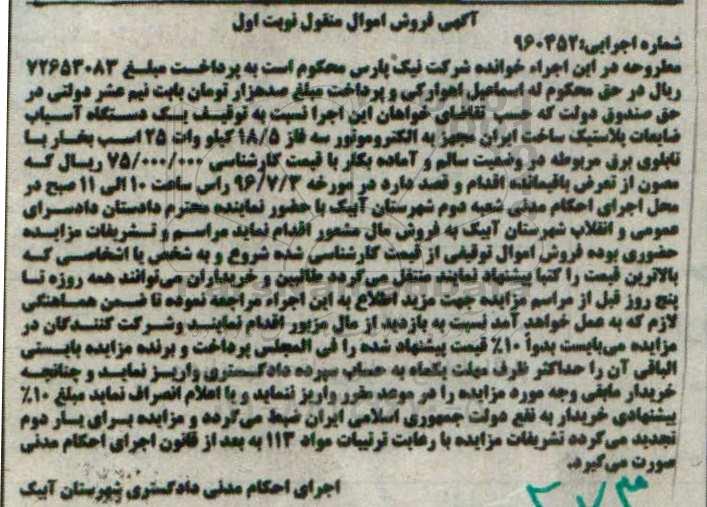 آگهی فروش اموال منقول نوبت اول
شماره اجرایی:۹۶۰۴۵۲
مطروحه در این اجراء خوانده شرکت نیک پارس محکوم است به پرداخت مبلغ ۷۲۶۵۳۰۸۳
ریال در حق محکوم له اسماعیل اهوارکی و پرداخت مبلغ صدهزار تومان بابت نیم عشر دولتی در
حق صندوق دولت که حسب تقاضای خواهان این اجرا نسبت به توقیف یک دستگاه آسیاب
ضایعات پلاستیک ساخت ایران مجهز به الکتروموتور سه فاز ۱۸/۵ کیلو وات ۲۵ اسب بخار با
تابلوی برق مربوطه در وضعیت سالم و آماده بکار با قیمت کارشناسی ۷۵/۰۰۰/۰۰۰ ریال که
مصون از تعرض باقیمانده اقدام و قصد دارد در مورخه ۹۶/۷/۳ راس ساعت ۱۰ الی ۱۱ صبح در
محل اجرای احکام مدنی شعبه دوم شهرستان آبیک با حضور نماینده محترم دادستان دادسرای
عمومی و انقلاب شهرستان آبیک به فروش مال مشعور اقدام نماید مراسم و تشریفات مزایده
حضوری بوده فروش اموال توقیفی از قیمت کارشناسی شده شروع و به شخص یا اشخاصی که
بالاترین قیمت را کتبا پیشنهاد نمایند منتقل می‌گردد طالبین و خریداران می‌توانند همه روزه تا
پنج روز قبل از مراسم مزایده جهت مزید اطلاع به این اجراء مراجعه نموده تا ضمن هماهنگی
لازم که به عمل خواهد آمد نسبت به بازدید از مال مزبور اقدام نمایند وشرکت کنندگان در
مزایده می‌بایست بدوأ ۱۰٪ قیمت پیشنهاد شده را فی المجلس پرداخت و برنده مزایده بایستی
الباقی آن را حداکثر ظرف مهلت یکماه به حساب سپرده دادگستری واریز نماید و چنانچه
خریدار مابقی وجه مورد مزایده را در موعد مقرر واریز ننماید و یا اعلام انصراف نماید مبلغ ۱۰٪
پیشنهادی خریدار به نفع دولت جمهوری اسلامی ایران ضبط می‌گردد و مزایده برای بار دوم
تجدید می‌گردد تشریفات مزایده با رعایت ترتیبات مواد ۱۱۳ به بعد از قانون اجرای احکام مدنی
صورت می‌گیرد.
اجرای احکام مدنی دادگستری شهرستان آبیک